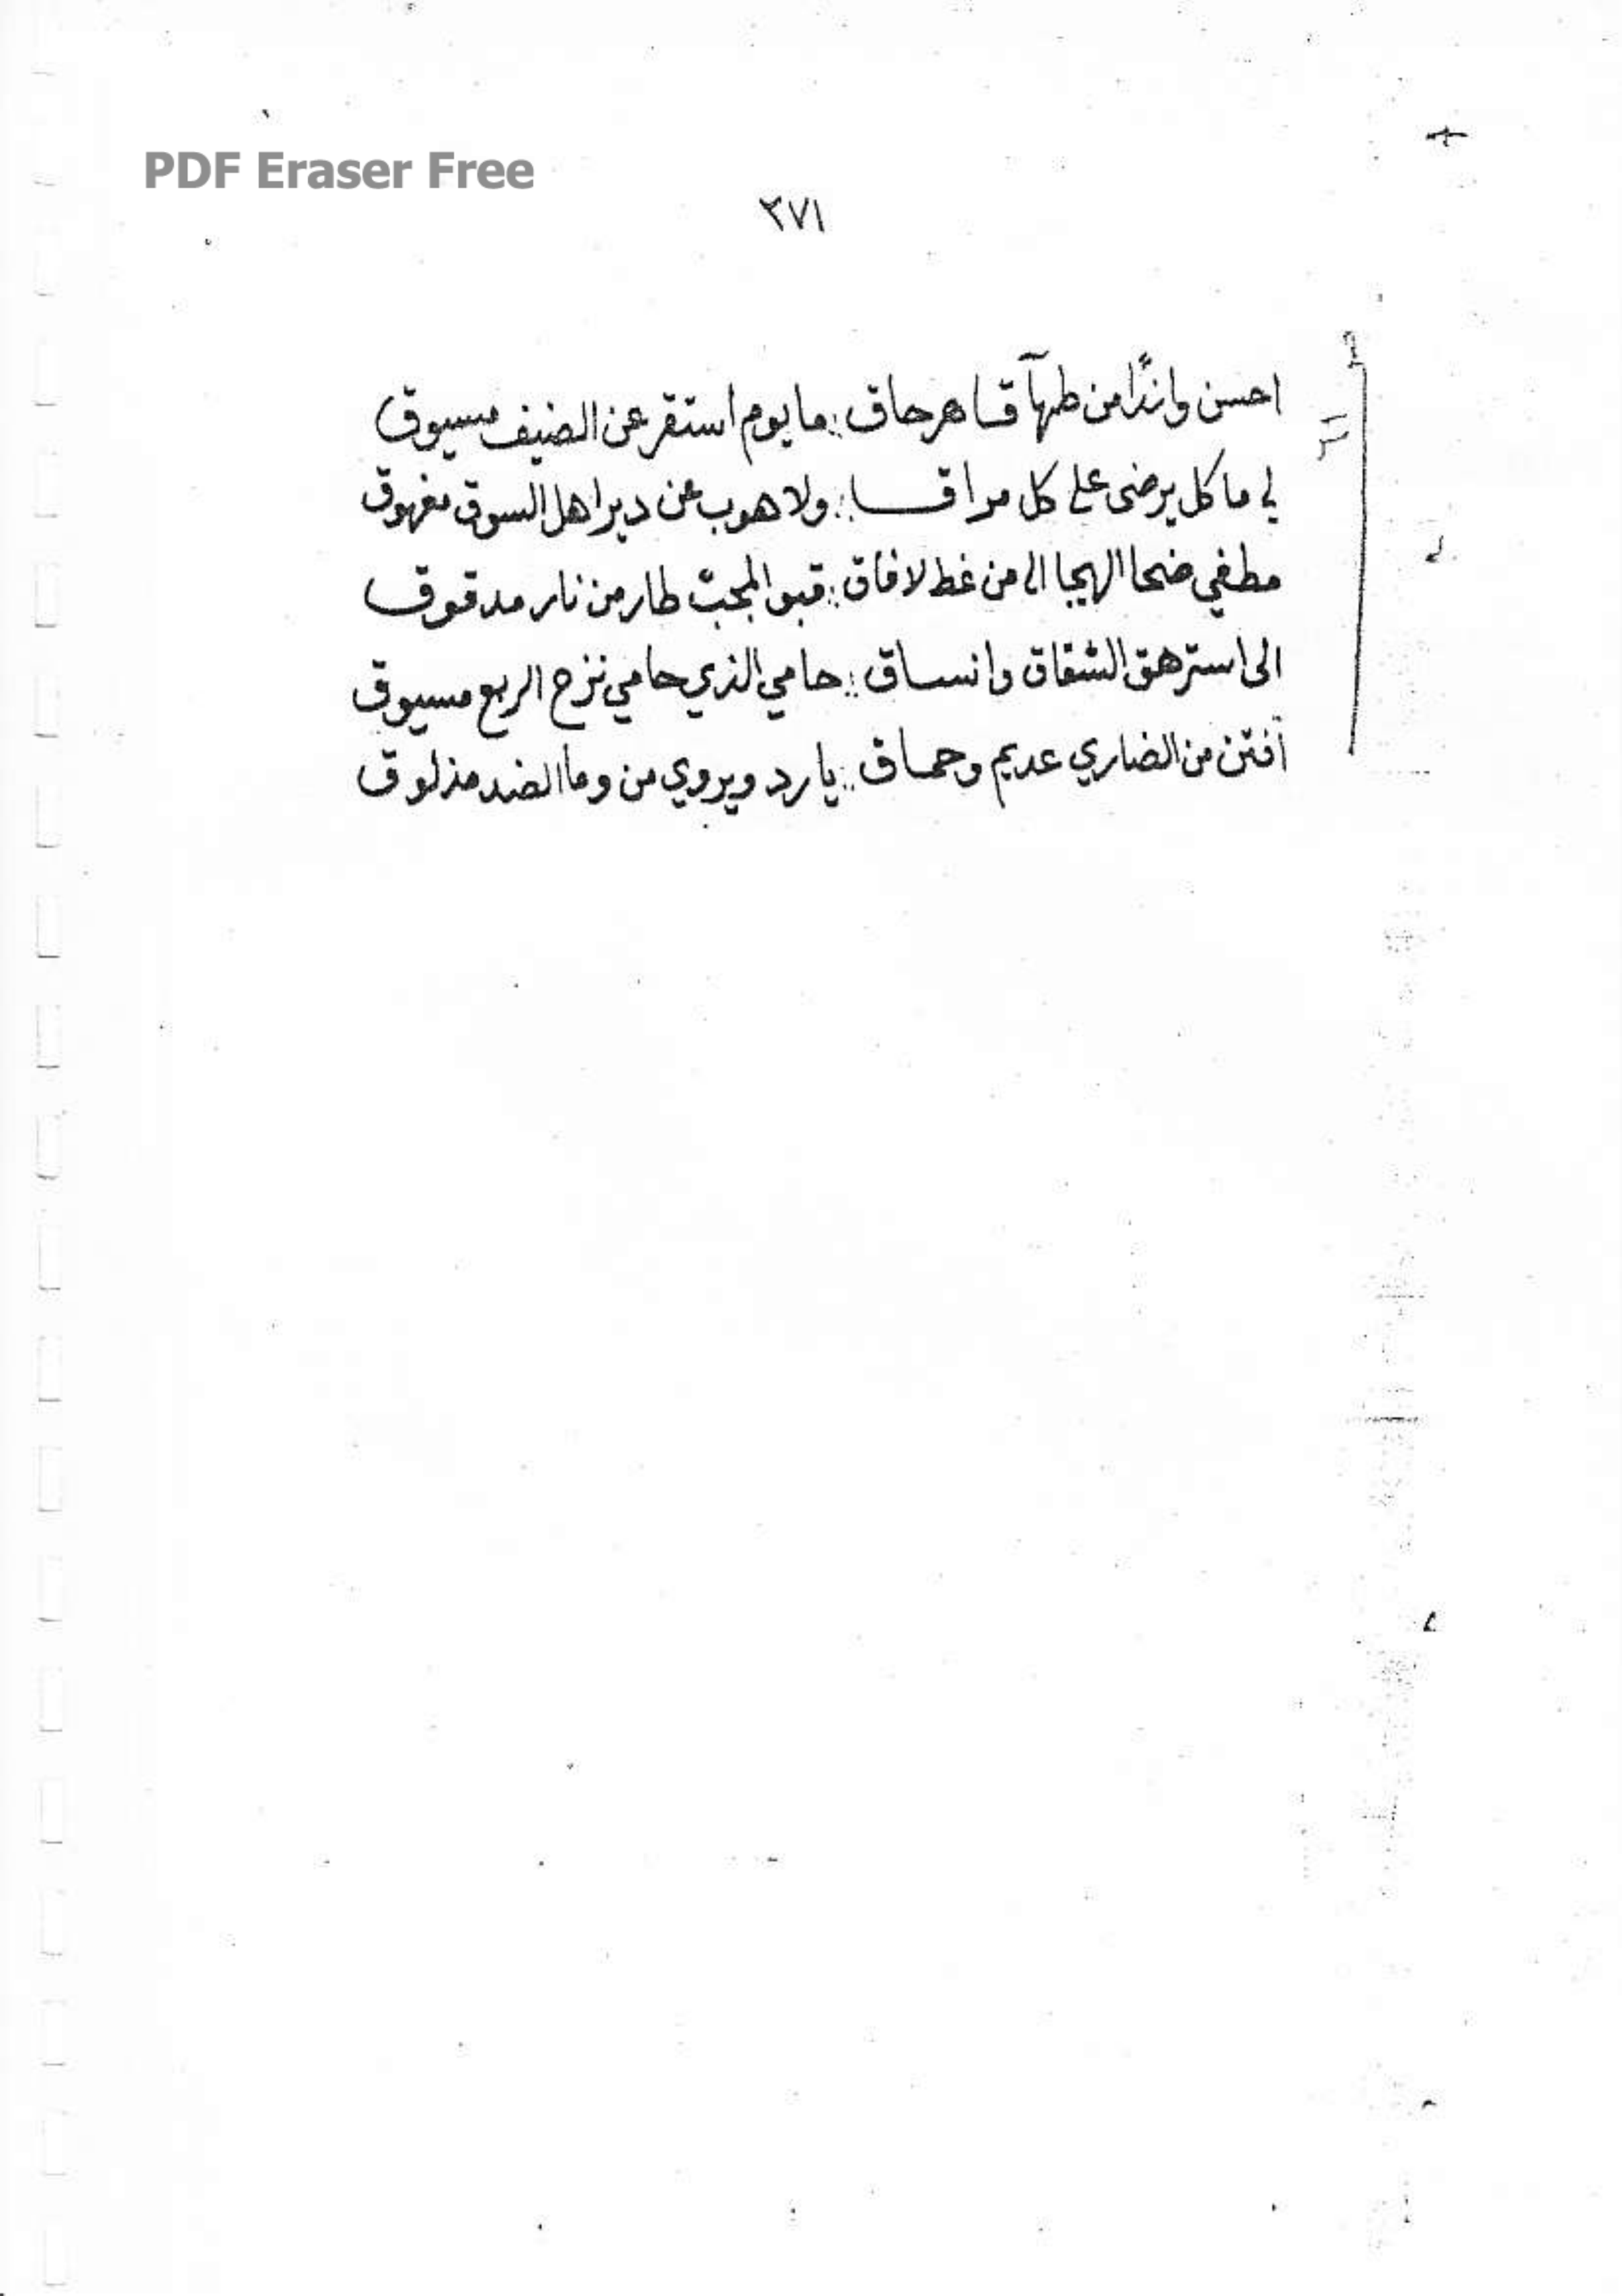 PDF Eraser Free
٢٧١
احسن واندًا من طهآ قاهرحاق :. ما يوم استقر عن الضيف مسيوق
لي ما كل يرضى على كل مراقا :. ولا هوب عن ديراهل السوق مفهوق
مطفي ضحا الهيجا الى من غط لافاق :. قبق المجبّ طار من نار مدقوق
الى استرهق الشقاق وانساق :. حامي الذي حامي نزح الربع مسيوق
أفتن من الضاري عديم وحماق :. يا رد ويروي من وما الضد مذلوق